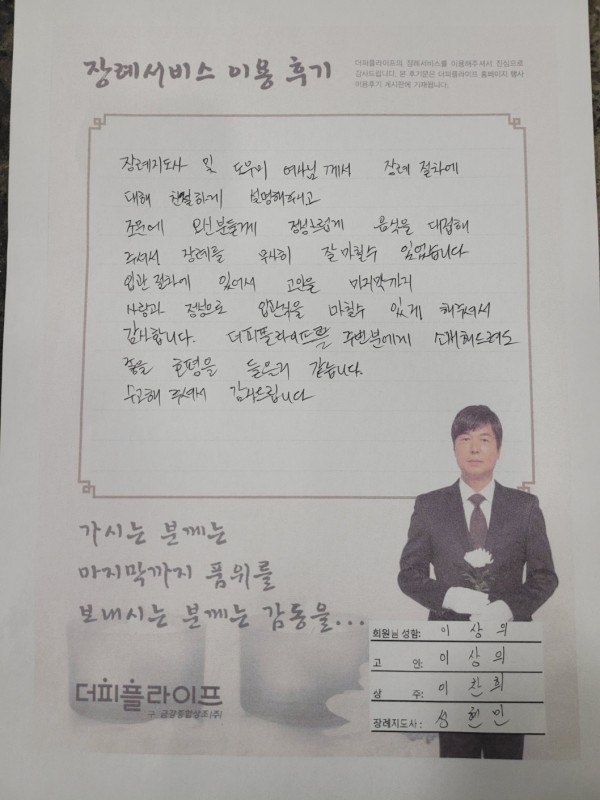 장례서비스 이용 후기
더피플라이프의 장례서비스를 이용해주셔서 진심으로
감사드립니다. 본 후기문은 더피플라이프 홈페이지 행사
이용후기 게시판에 기재됩니다.
장례지도사 및 도우미 여사님께서 장례 절차에
대해 친절하게 설명해주시고
조문에 오신분들께 정성스럽게 음식을 대접해
주셔서 장례를 무사히 잘 마칠수 있었습니다
입관 절차에 있어서 고인을 마지막까지
사랑과 정성으로 입관식을 마칠수 있게 해주셔서
감사합니다. 더피플라이프를 주변분에게 소개해드려도
좋을 호평을 들은거 같습니다.
수고해 주셔서 감사드립니다
가시는 분께는
마지막까지 품위를
보내시는 분께는 감동을...
더피플라이프
구. 금강종합상조(주)
회원님 성함: 이상의
고 인: 이상의
상 주: 이찬희
장례지도사: 성현민